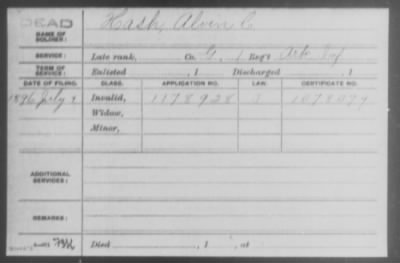 DEAD
NAME OF SOLDIER: Hash, Alvin C.
SERVICE: Late rank, Co. G, 1 Reg't Ark Inf
TERM OF SERVICE: Enlisted , 1 Discharged , 1
DATE OF FILING. CLASS. APPLICATION NO. LAW. CERTIFICATE NO.
1896 July 8 Invalid, 1178928
Widow,
Minor,
ADDITIONAL SERVICES:
REMARKS:
Died , 1 , at